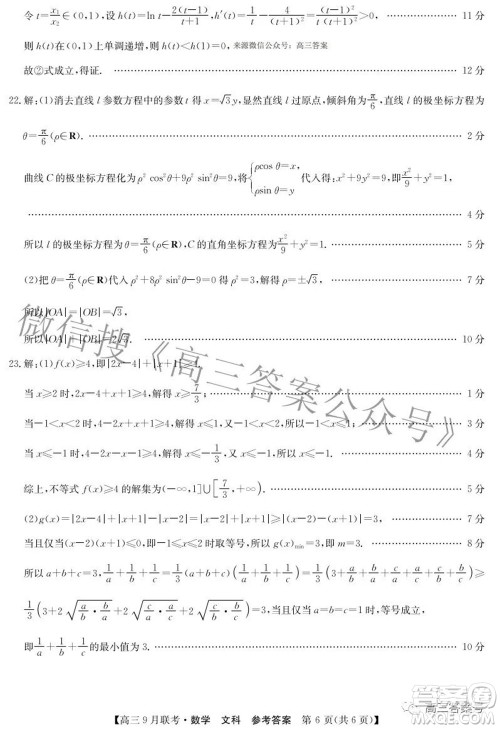 令 t=x₁/x₂∈(0,1),设 h(t)=ln t-2(t-1)/(t+1),h′(t)=1/t-4/(t+1)²=(t-1)²/t(t+1)²>0. 11 分
则 h(t)在(0,1)上单调递增,则 h(t)<h(1)=0, 来源微信公众号:高三答案
故②式成立,得证. 12 分
22.解:(1)消去直线 l 参数方程中的参数 t 得 x=√3y,显然直线 l 过原点,倾斜角为π/6,直线 l 的极坐标方程为
θ=π/6(ρ∈R). 2 分
曲线 C 的极坐标方程化为 ρ²cos²θ+9ρ²sin²θ=9,将{ρcos θ=x, ρsin θ=y 代入方程得:x²+9y²=9,即x²/9+y²=1,
4 分
所以 l 的极坐标方程为 θ=π/6(ρ∈R),C 的直角坐标方程为x²/9+y²=1. 5 分
(2)把 θ=π/6(ρ∈R)代入 ρ²+8ρ²sin²θ-9=0 得,解得:ρ=±√3, 7 分
所以|OA|=|OB|=√3,
所以|OA|+|OB|=2√3. 10 分
23.解:(1)f(x)≥4,即|2x-4|+|x+1|≥4,
当 x≥2 时,2x-4+x+1≥4,解得 x≥7/3; 1 分
当-1<x<2 时,4-2x+x+1≥4,解得-1<x≤1; 3 分
当 x≤-1 时,4-2x-x-1≥4,解得 x≤-1/3,又 x≤-1,所以 x≤-1. 4 分
综上,不等式 f(x)≥4 的解集为(-∞,1]∪[7/3,+∞). 5 分
(2)g(x)=|2x-4|+|x+1|-|x-2|=|x-2|+|x+1|≥|x-2-(x+1)|=3, 7 分
当且仅当(x-2)(x+1)≤0,即-1≤x≤2 时取等号,所以 g(x)min=3,即 m=3. 8 分
所以 a+b+c=3,1/a+1/b+1/c=1/3(a+b+c)(1/a+1/b+1/c)=1/3(3+a/b+b/a+c/a+a/c+c/b+b/c)≥
1/3(3+2√(a/b·b/a)+2√(c/a·a/c)+2√(c/b·b/c))=3,当且仅当 a=b=c=1 时,等号成立,
即1/a+1/b+1/c的最小值为 3. 10 分
【高三 9 月联考·数学 文科 参考答案 第 6 页(共 6 页)】
微信搜《高三答案公众号》
高三答案号